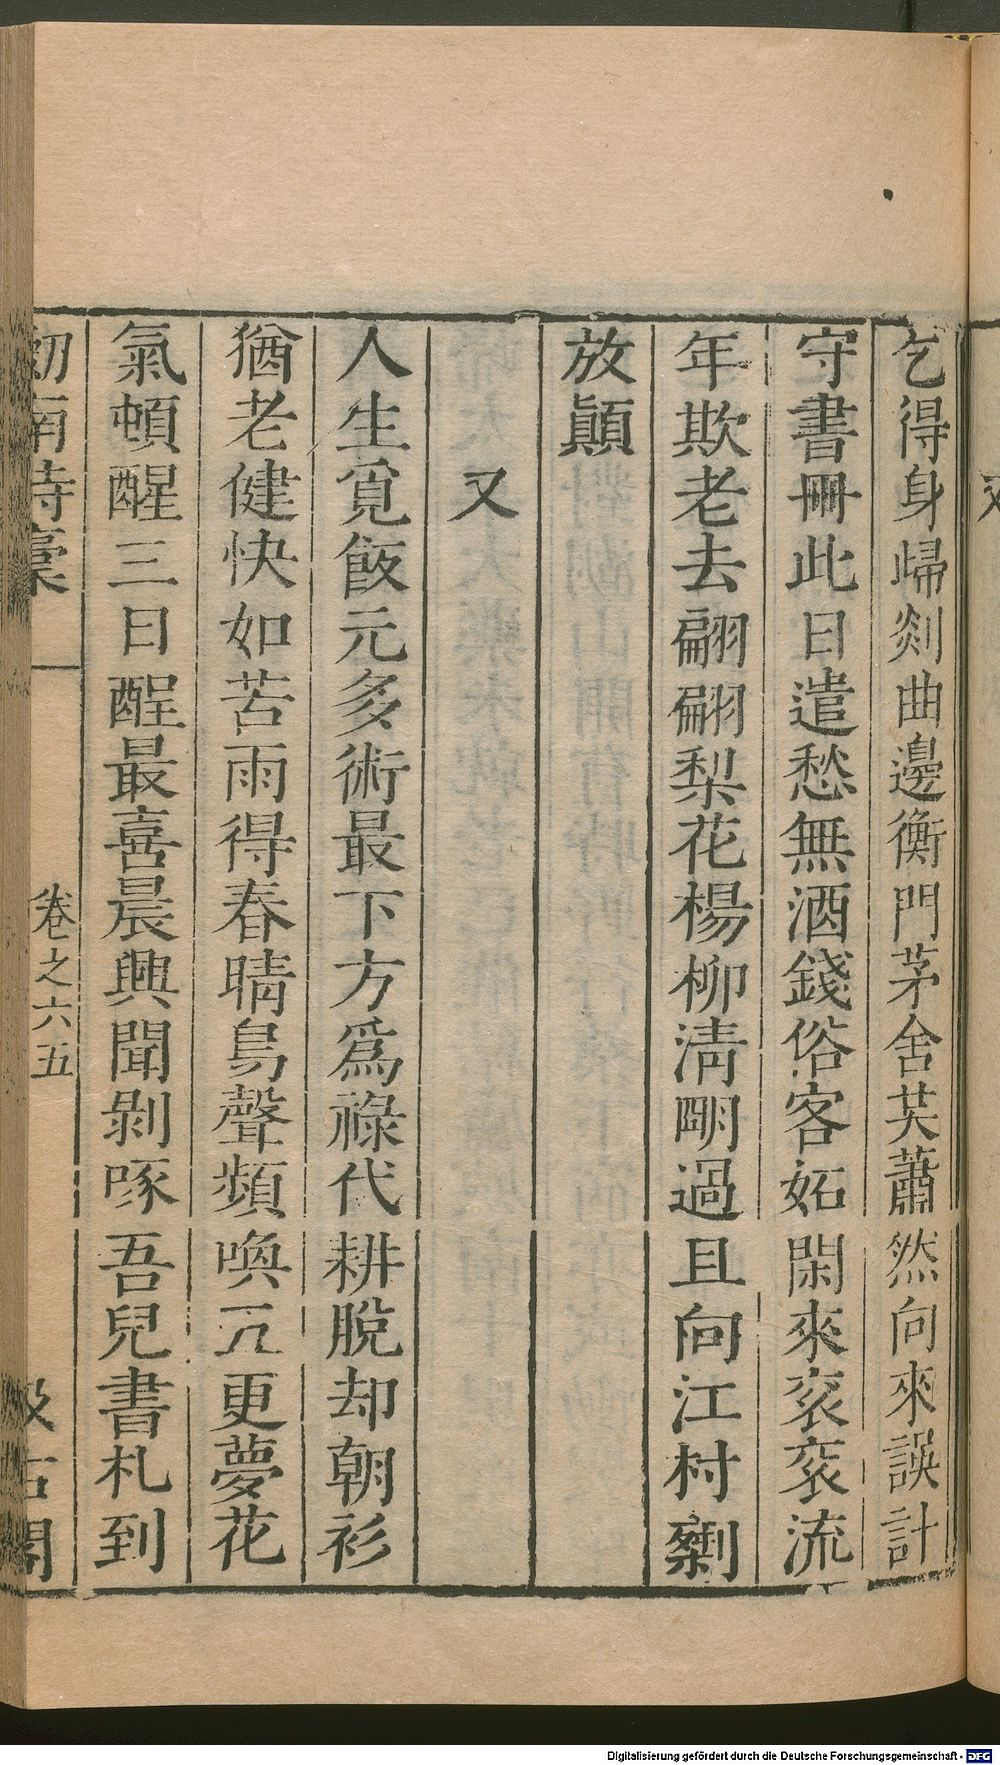 又
乞得身歸剡曲邊衡門茅舍共蕭然向來誤計
守書冊此日遣愁無酒錢俗客妬閑來衮衮流
年欺老去翩翩梨花楊柳淸明過且向江村劇
放顛
又
人生覓飯元多術最下方爲祿代耕脫却朝衫
猶老健快如苦雨得春晴鳥聲頻喚五更夢花
氣頓醒三日酲最喜晨興聞剝啄吾兒書札到
劒南詩稾
卷之六五
汲古閣
Digitalisierung gefördert durch die Deutsche Forschungsgemeinschaft - DFG